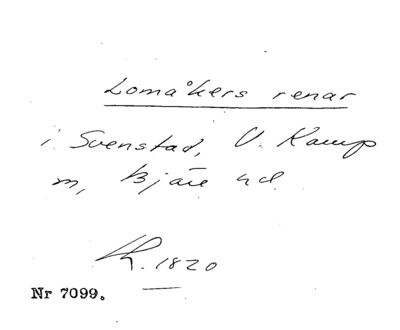 Lomåkers renar
i Svenstad, V. Karup
sn, Bjäre hd.
R. 1820
Nr 7099.